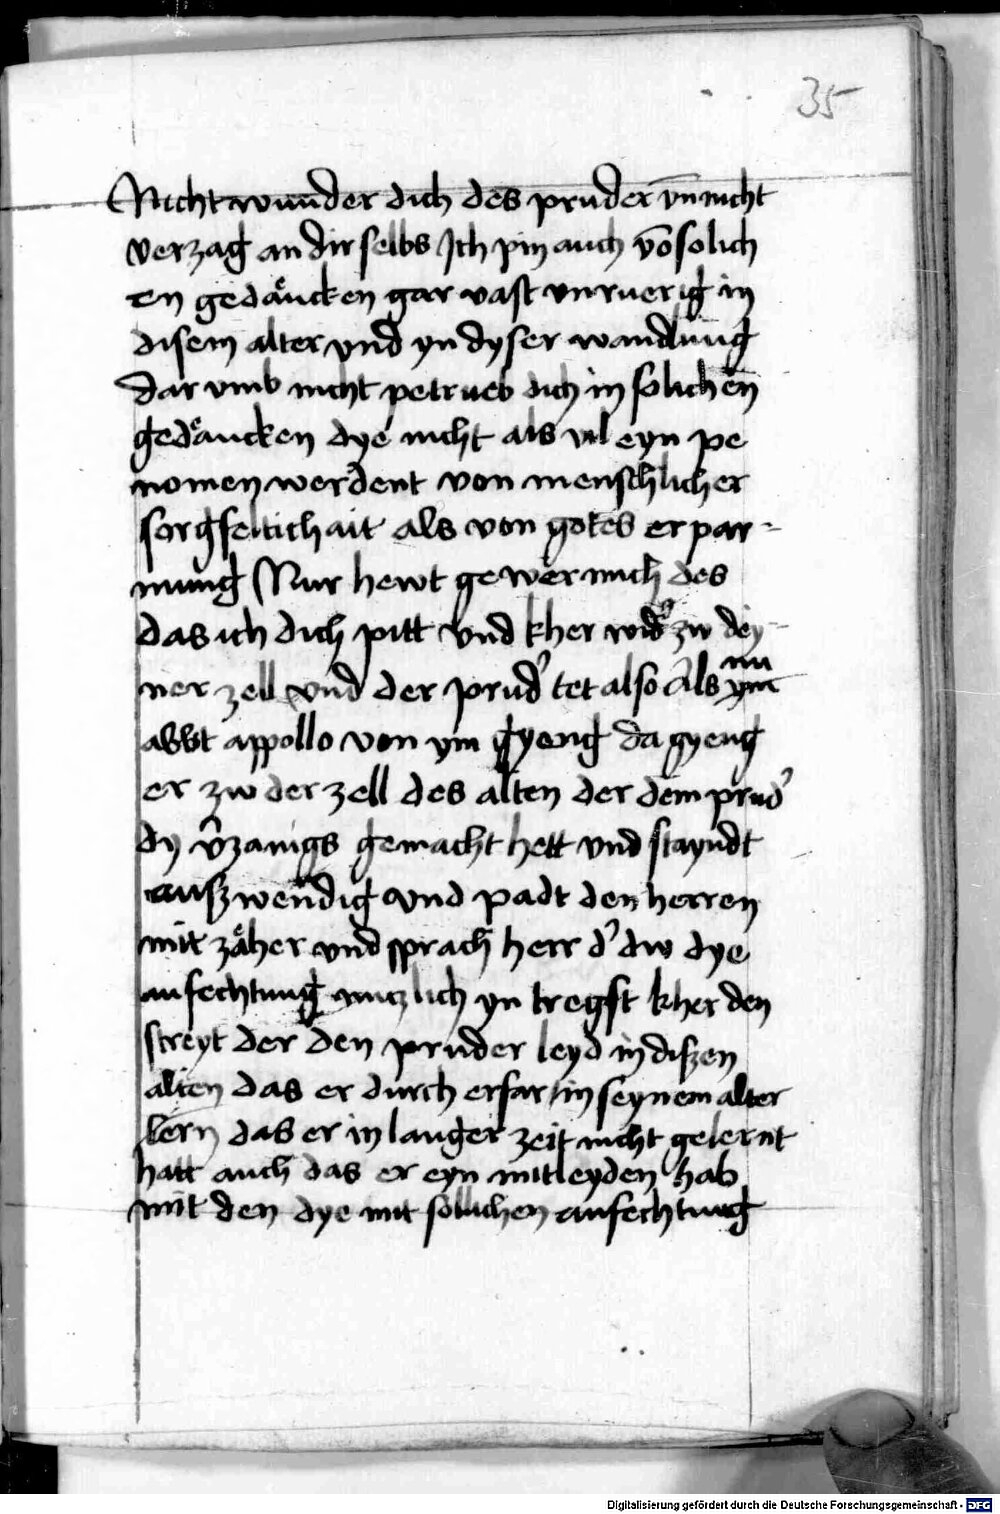 35
Nicht wunder dich des pruder vn̄ nicht
verzag an dir selbs Ich pin auch vō solich
en gedäncken gar vast vnruerig in
disem alter vnd yn dyser wandlung
dar vmb nicht petrueb dich in solichen
gedäncken dye nicht als vil eyn pe
nomen werdent von menschlicher
sorgfeltichait als von gotes erpar-
mung Nur hewt gewer mich des
das ich dich pitt vnd kher wid' zw dey-
ner zell vnd der prud' tet also Als nu
abbt appollo von ym gyeng da gyeng
er zw der zell des alten der dem prud'
dy v̄zanigs gemacht hett vnd stayndt
auszwendig vnd padt den herren
mit zäher vnd sprach herr d' dw dye
anfechtung nuczlich yn tregst kher den
streyt der den pruder leyd in diszen
alten das er durch erfar in seynem alter
lern das er in langer zeit nicht gelernt
hatt auch das er eyn mitleyden hab
mit den dye mit sollichen anfechtung
Digitalisierung gefördert durch die Deutsche Forschungsgemeinschaft - DFG